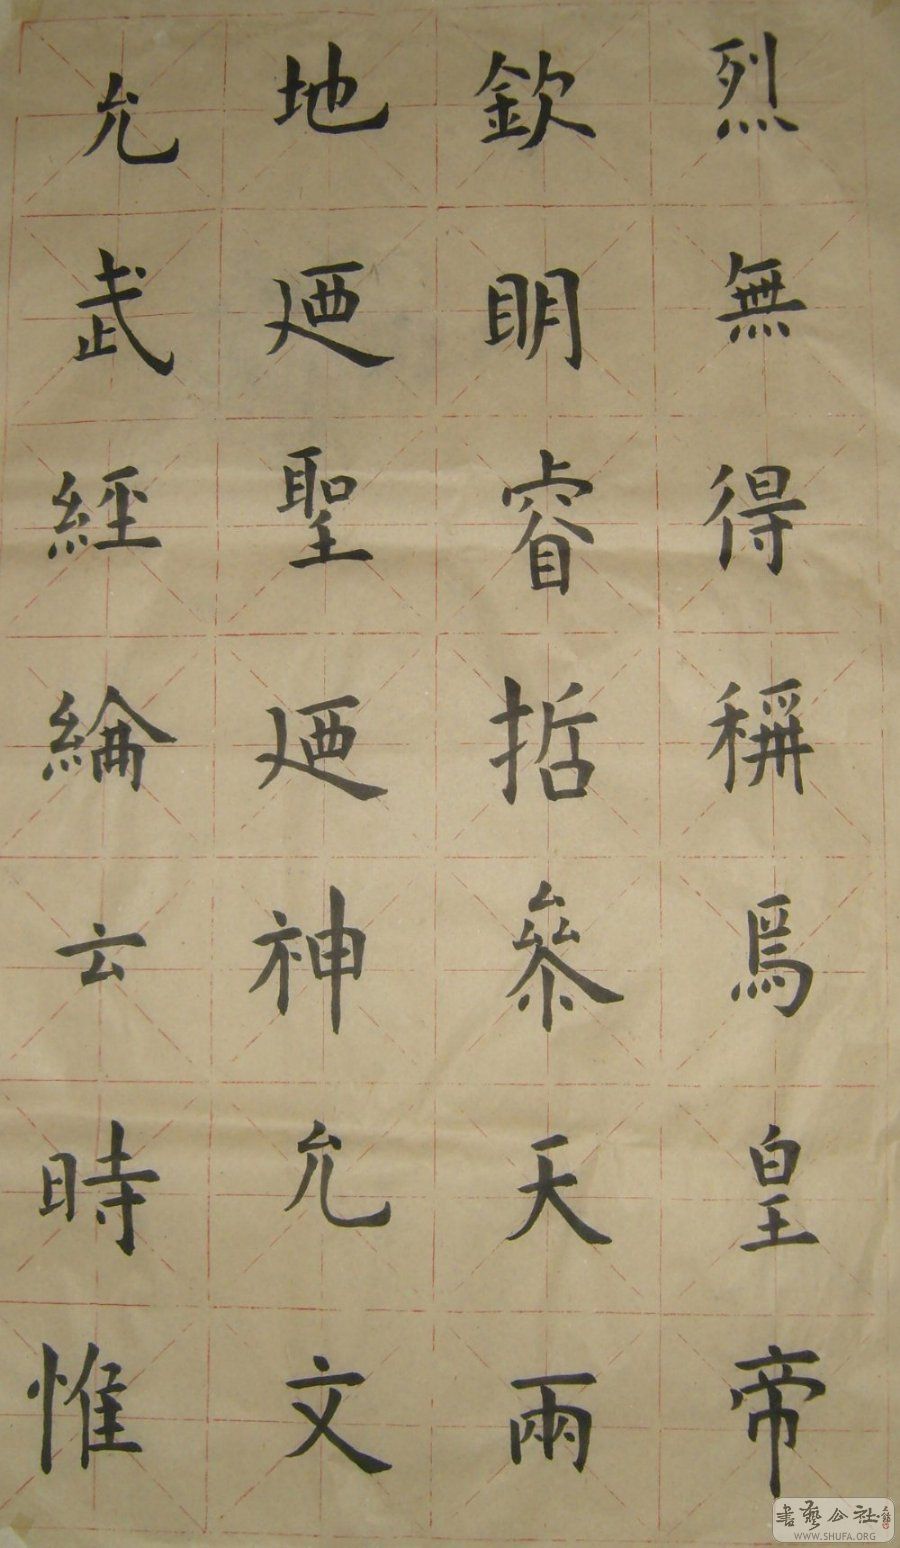 烈無得稱焉皇帝
欽明睿哲參天兩
地迺聖迺神允文
允武經綸云時惟
書藝公社
WWW.SHUFA.ORG